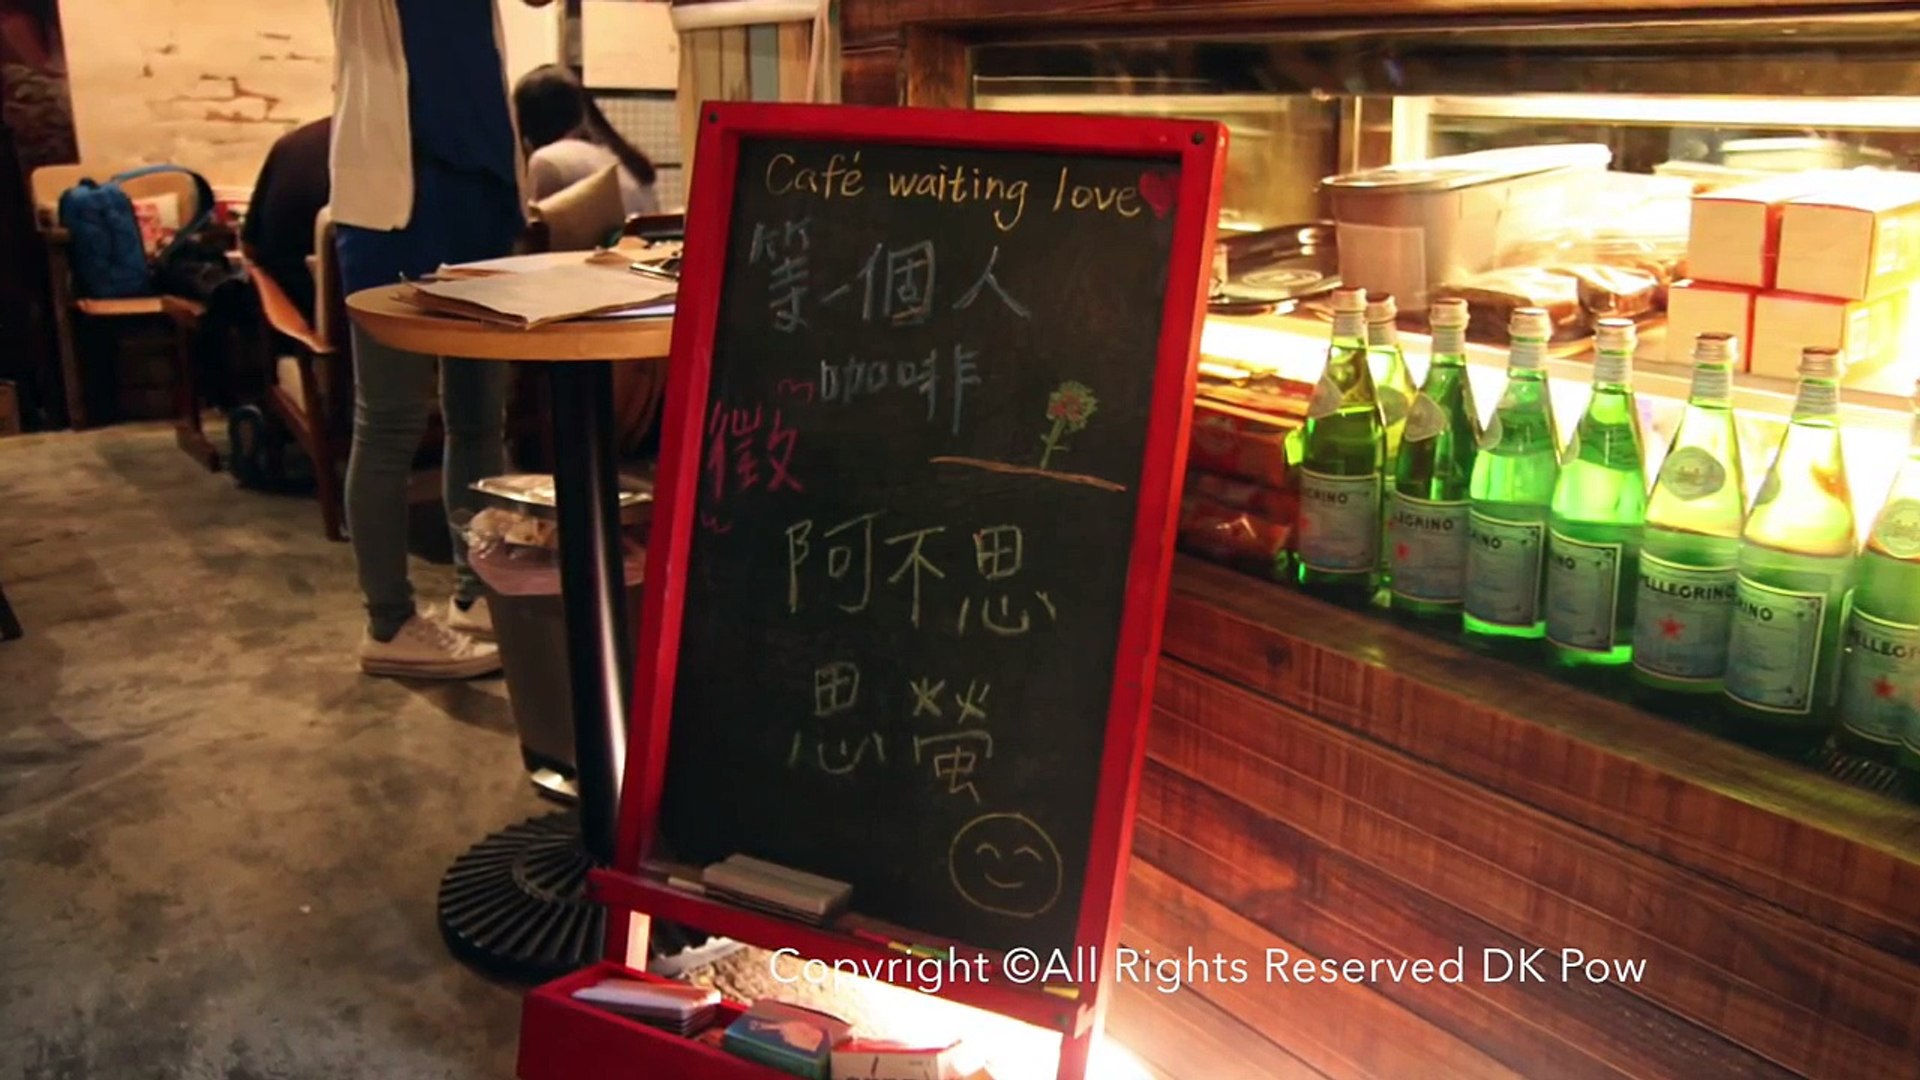 Café waiting love
等一個人
咖啡
徵
阿不思
思螢
GRINO
LEGRINO
RINO
INO
PELLEGRINO
RINO
PELLEGR
Copyright ©All Rights Reserved DK Pow